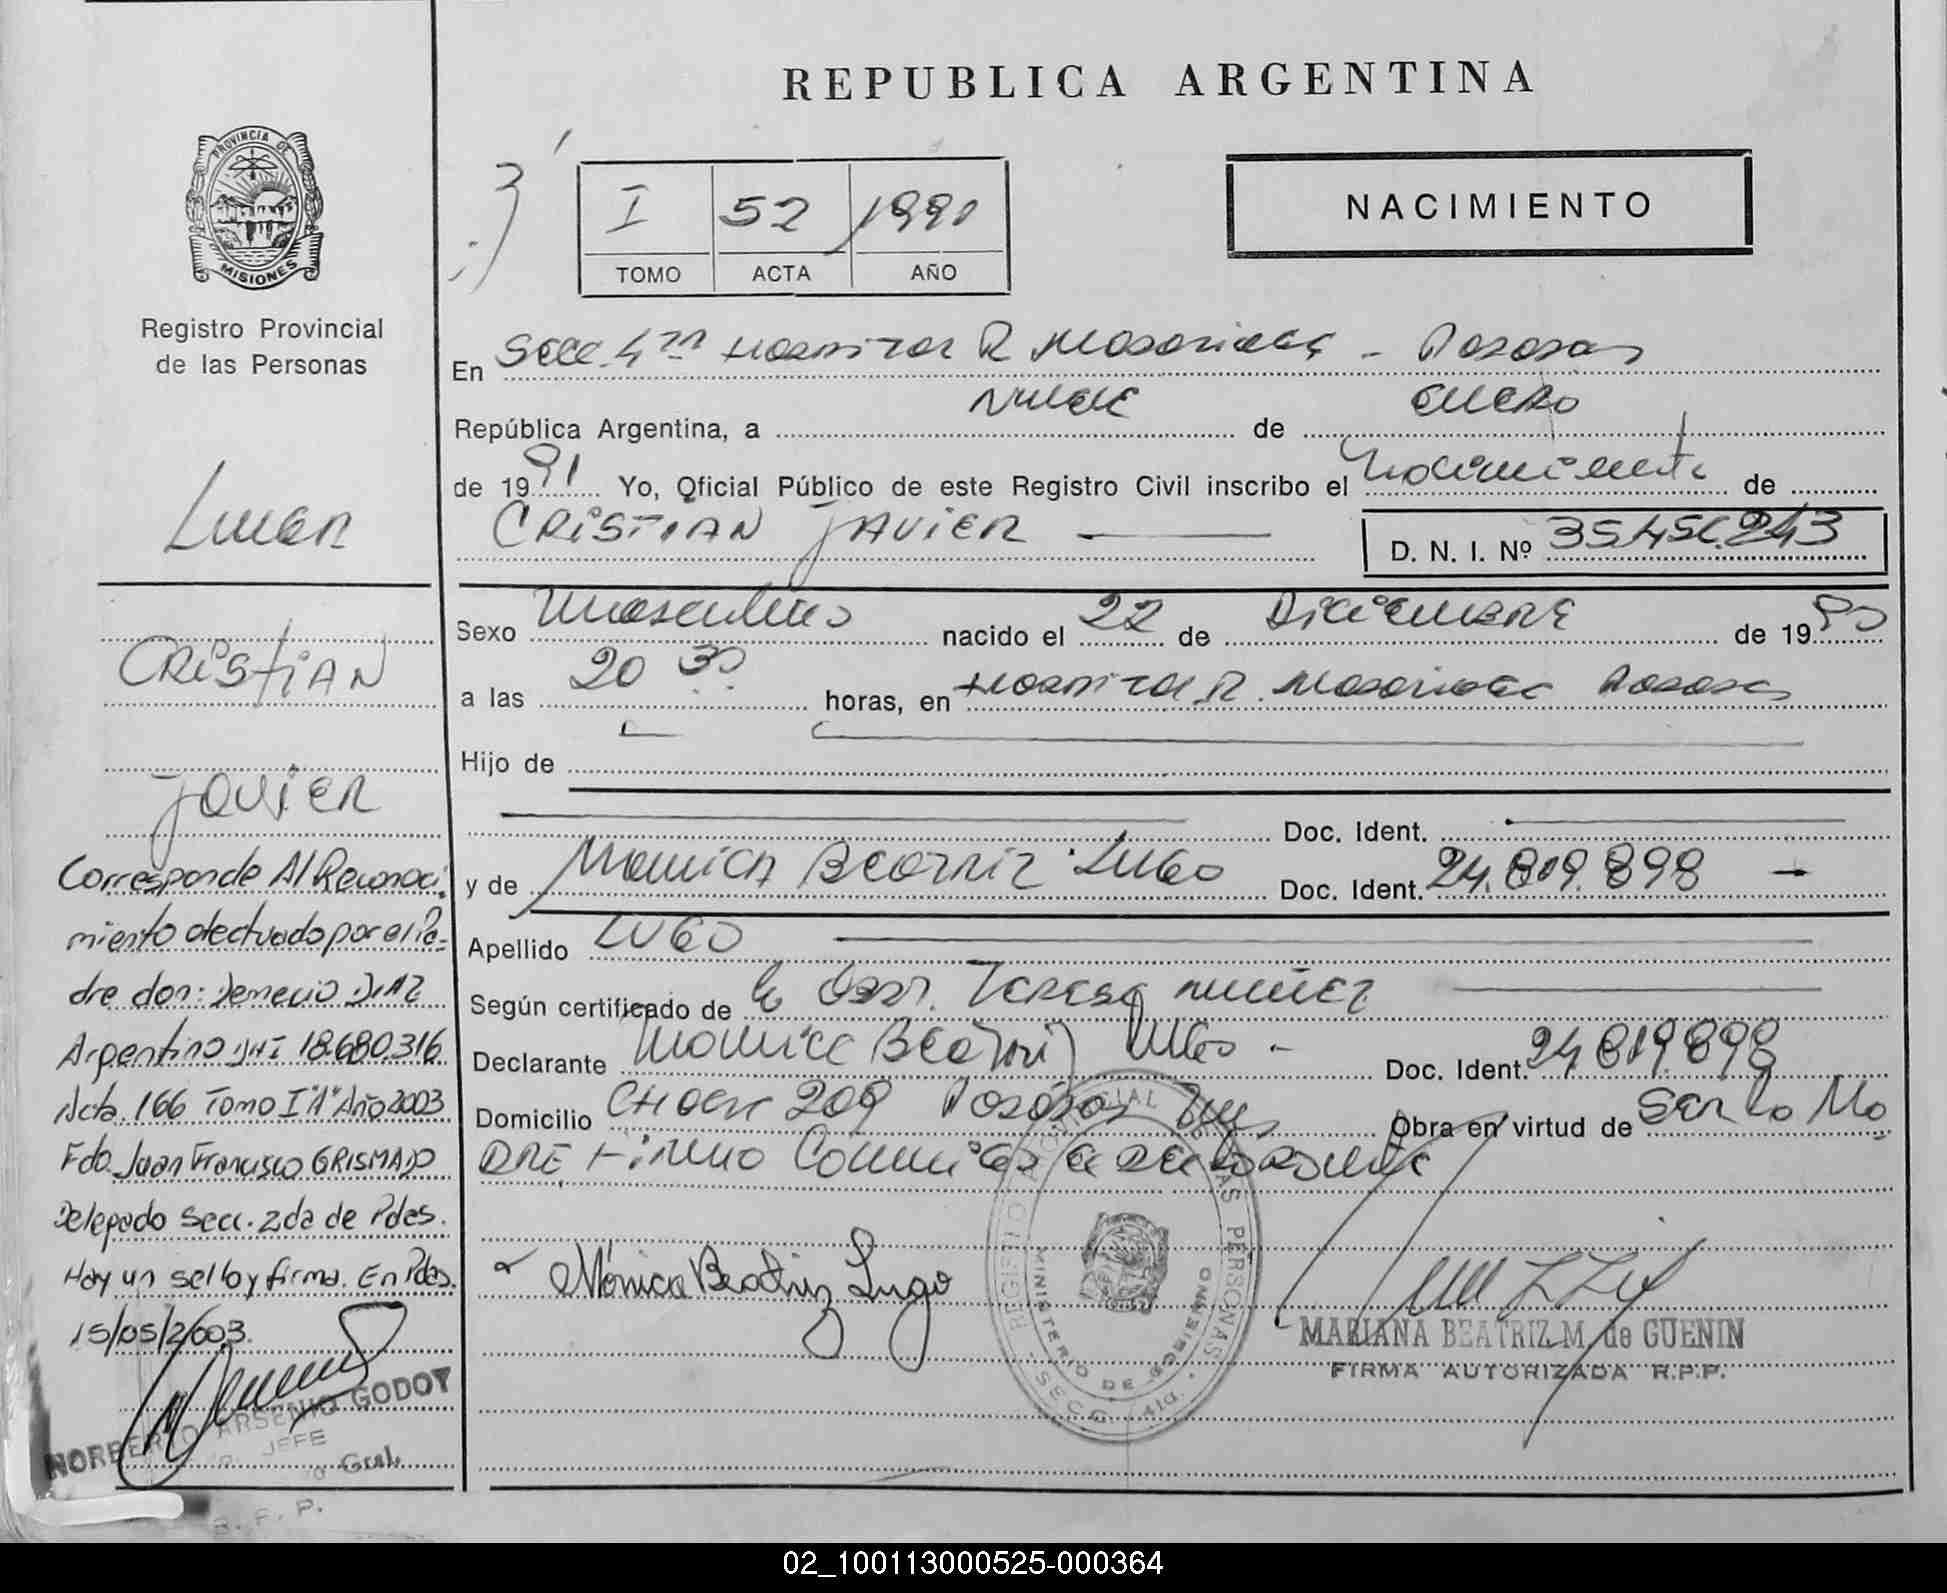 REPUBLICA ARGENTINA
PROVINCIA DE
MISIONES
Registro Provincial
de las Personas
I 52
TOMO ACTA AÑO
NACIMIENTO
En Secc. 4ta Hospital R Madariaga - Posadas
República Argentina, a nueve de enero
de 1991 Yo, Oficial Público de este Registro Civil inscribo el nacimiento de
CRISTIAN JAVIER
D. N. I. Nº
Sexo masculino nacido el 22 de Diciembre de 1990
a las 20 30 horas, en Hospital R. Madariaga Posadas
Hijo de
Doc. Ident.
y de Monica Beatriz Lugo Doc. Ident. 24.819.898
Apellido LUGO
Según certificado de la Teresa Nuñez
Declarante Monica Beatriz Lugo - Doc. Ident. 24.819.898
Domicilio 209 Posadas Obra en virtud de ser la Ma
dre
Mónica Beatriz Lugo
REGISTRO PROVINCIAL DE LAS PERSONAS
MINISTERIO DE GOBIERNO
SECC. 4ta.
MARIANA BEATRIZ M. de GUENIN
FIRMA AUTORIZADA R.P.P.
CRISTIAN
Javier
Corresponde Al Reconoci
miento efectuado por el Pa-
dre don: Demecio DIAZ
Argentino DNI 18.680.316
Acta 166 Tomo I "A" Año 2003
Fdo. Juan Francisco GRISMADO
Delegado Secc. 2da de Pdas.
Hay un sello y firma. En Pdas.
15/05/2003.
NORBERTO ARSENIO GODOY
JEFE
Gral.
R. P. P.
02_100113000525-000364